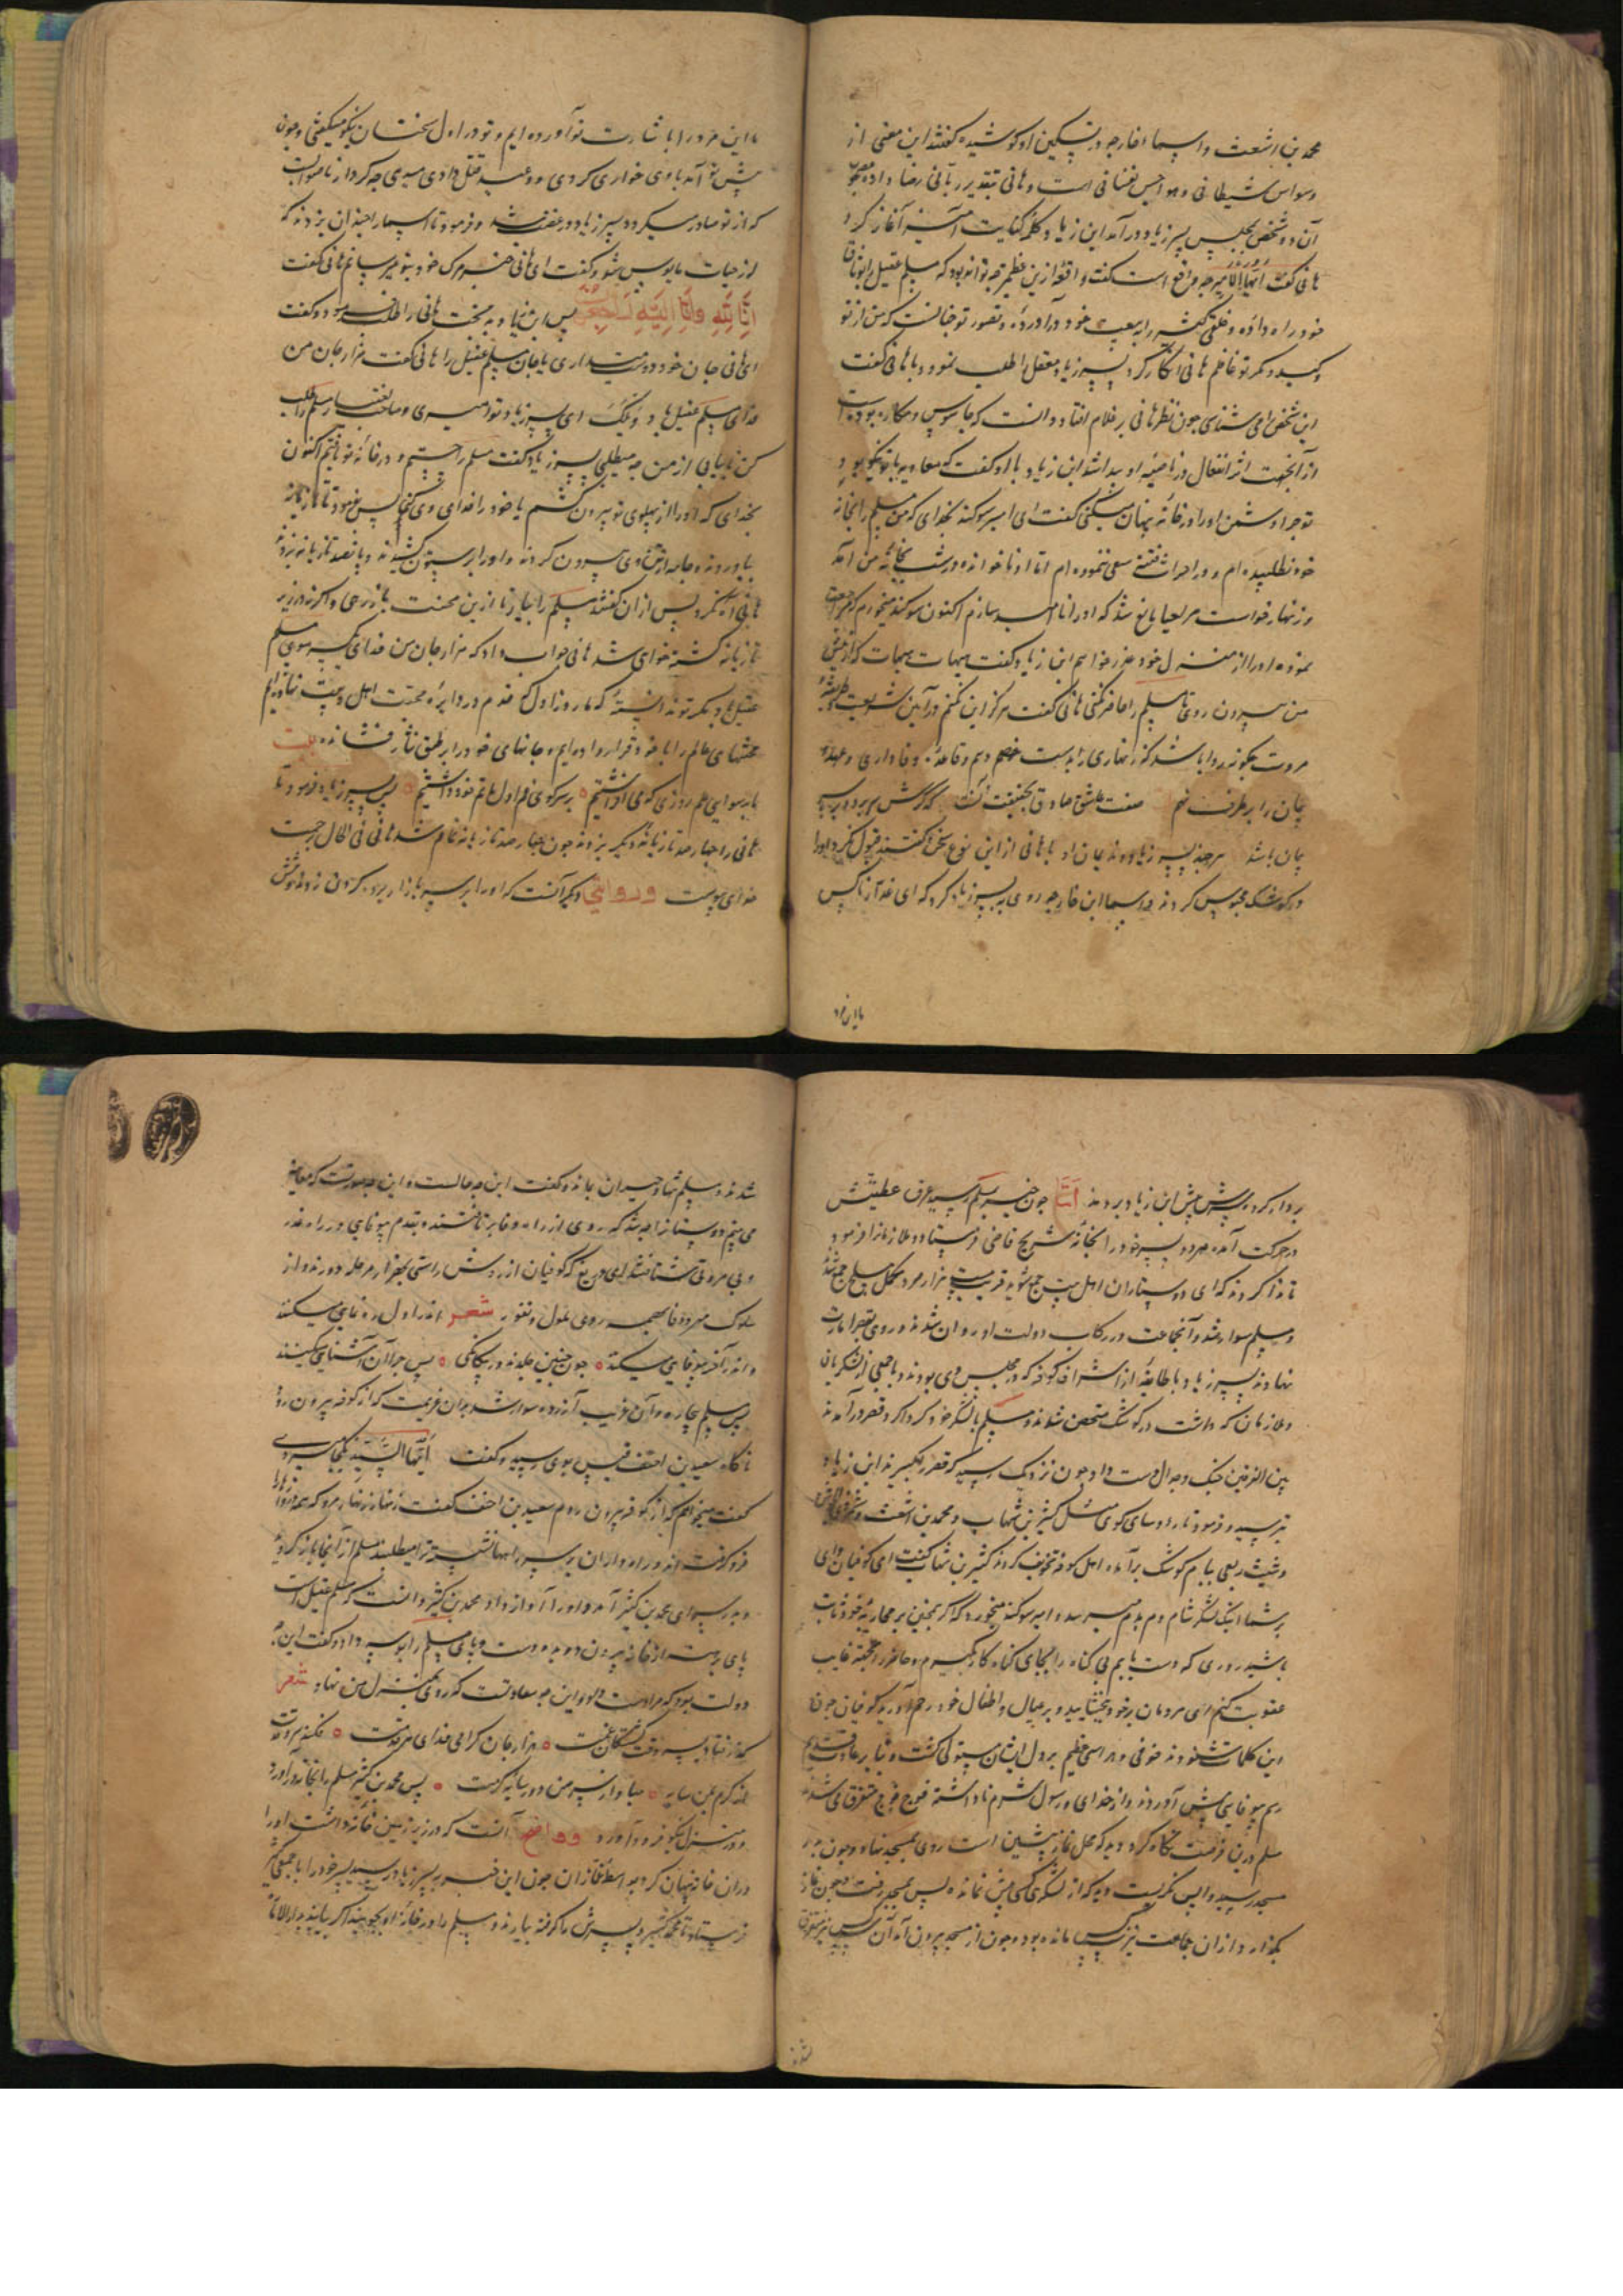 محمد بن اشعث و اسما خارجه در تسکین او کوشیده گفتند این معنی از
وسواس شیطانی و هواجس نفسانی است و هانی بتقدیر ربانی رضا داده
آن دو شخص بمجلس پسر زیاد در آمد ابن زیاد کلمه کنایت آمیز آغاز کرد
هانی گفت ایها الامیر چه واقع است گفت واقعه ازین عظیم تر چه تواند بود که مسلم عقیل را
خود راه داده و خلقی کثیر را به بیعت خود در آورده و تصور تو چنانست که من از تو
و کید و مکر تو غافلم هانی انکار کرد پسر زیاد معقل را طلب نمود و با هانی گفت
این شخص را می شناسی چون نظر هانی بر غلام افتاد دانست که جاسوس و مکار بوده است
از آنجهت اثر انفعال در ناصیه او پیدا شد ابن زیاد با او گفت که معاویه با تو نیکو بود
تو چرا دشمن او را در خانه پنهان میکنی گفت ای امیر سوگند بخدای که من مسلم را بخانه
خود نطلبیده ام و در احداث فتنه سعی ننموده ام اما او ناخوانده در شب بخانه من آمد
و زنهار خواست مرا حیا مانع شد که او را نا امید سازم اکنون سوگند میخورم که
نموده او را از منزل خود عذر خواهم ابن زیاد گفت هیهات هیهات که از پیش
من بیرون روی تا مسلم را حاضر نکنی هانی گفت هرگز این نکنم در آیین شریعت و طریقه
مروت چگونه روا باشد که زنهاری را بدست خصم دهم و قاعده وفاداری و عهد
جان را بر طرف نهم صفت عاشق صادق بحقیقت آنست که گرش سر برود بر سر
جان باشد هر چند پسر زیاد و ندیمان او با هانی از این نوع سخن گفتند قبول نکرد او را
در کوشک محبوس کردند اسما ابن خارجه روی به پسر زیاد کرد که ای غدار ناکس
ما این مرد
ما این مرد را باشارت تو آورده ایم و تو در اول سخنان نیکو میگفتی و چون
پیش تو آمد با وی خواری کردی و وعید قتل دادی میدی چه کردار ناصوابست
که از تو صادر میگردد پسر زیاد در غضب شد و فرمود تا اسما را چندان بزدند که
از حیات مایوس شد و گفت ای هانی خبر مرگ خود بتو میرسانم هانی گفت
انا لله وانا الیه راجعون پس ابن زیاد بد بخت هانی را طلب نمود و گفت
ای هانی جان خود دوست میداری یا جان مسلم عقیل را هانی گفت هزار جان من
فدای مسلم عقیل باد ویلک ای پسر زیاد تو امیری و صاحب اختیار مسلم را طلب
کن تا بیابی از من چه میطلبی پسر زیاد گفت مسلم را جستیم و در خانه تو یافتیم اکنون
بخدای که او را از پهلوی تو بیرون کشم یا خود را فدای وی کنی پس بفرمود تا تازیانه
بیاوردند و جامه از تن وی بیرون کردند و او را بر ستون کشیدند و پانصد تازیانه بزدند
هانی آه نکرد پس از آن گفتند مسلم را بیار تا ازین محنت باز رهی و اگر نه در زیر
تازیانه کشته خواهی شد هانی جواب داد که هزار جان من فدای یک سر موی مسلم
عقیل باد مگر تو ندانسته که ما روز اول که قدم در دایره محبت اهل بیت نهاده ایم
محنتهای عالم را با خود قرار داده ایم و جانهای خود را بر طبق نثار فشانده بیت
ما رسوایی هم روزی که می افراشتیم بر سر کوی غم اول ماتم خود داشتیم پس پسر زیاد فرمود تا
هانی را چهار صد تازیانه دیگر بزدند چون چهار صد تازیانه تمام شد هانی فی الحال برحمت
خدای پیوست و روایتی دیگر آنست که او را بر سر بازار برده گردن زدند و نعش
بردار کرده سرش پیش ابن زیاد بردند اما چون خبر مسلم رسید عرق عطیتش
در حرکت آمده هر دو پسر خود را بخانه شریح قاضی فرستاد و ملازمانرا فرمود
تا ندا کردند که ای دوستاران اهل بیت جمع شوید قریب بیست هزار مرد مکمل مسلح جمع شد
و مسلم سوار شد و آنجماعت در رکاب دولت او روان شدند و روی بقصر امارت
نهادند پسر زیاد با طایفه از اشراف کوفه که در مجلس وی بودند و با جمعی از لشکریان
و ملازمان که داشت در کوشک متحصن شدند و مسلم با لشکر خود گرد اگرد قصر در آمدند
بین الفریقین جنگ و جدال دست داد و چون نزدیک رسید که قصر را بگیرند ابن زیاد
بترسید و فرمود تا رؤسای کوفی مثل کثیر بن شهاب و محمد بن اشعث و شمر ذی الجوشن
و شیث ربعی ببام کوشک بر آمده اهل کوفه تخویف کردند کثیر بن شهاب گفت ای کوفیان وای
بر شما اینک لشکر شام دم بدم میرسد و امیر سوگند میخورد که اگر همچنین بر محاربه خود ثابت
باشید روزی که دست یابم بی گناه را بجای گناه کار بگیرم و حاضر را بجهة غایب
عقوبت کنم ای مردمان بر خود ببخشایید و بر عیال و اطفال خود رحم آورید کوفیان چون
این کلمات شنودند خوفی و هراسی عظیم بر دل ایشان مستولی گشت و بنا بر عادت قدیم
رسم بیوفایی پیش آوردند و از خدای و رسول شرم نا داشته فوج فوج متفرق می شدند
مسلم درین فرصت نگاه کرد دید که محل نماز پیشین است روی بمسجد نهاد و چون بدر
مسجد رسید واپس نگریست دید که از لشکری کسی بیش نمانده پس بمسجد رفت و چون نماز
بگذارد از آن جماعت نیز کس مانده بود و چون از مسجد بیرون آمد آن کس نیز متفرق
شدند
شدند و مسلم تنها و حیران بماند و گفت این چه حالست و این چه صورتست که معاینه
می بینم دوستانرا چه شد که روی از راه وفا بر تافتند و بقدم بیوفایی در راه غدر
و بی مروتی شتافتند ای دریغ که کوفیان از روش راستی بهزار مرحله دورند و از
سلوک مردم فا همه روی ملول و نفور شعر اندر اول ره نمایی میکنند
و اندر آخر بیوفایی میکنند چون چنین جلدند در بیگانگی پس چرا آن آشنایی میکنند
پس مسلم بیچاره و آن غریب آزرده سوار شد بدان عزیمت که از کوفه بیرون رود
ناگاه سعید بن احنف قیس بوی رسید و گفت ایها السید بکجا میروی
گفت میخواهم که از کوفه بیرون روم سعید بن احنف گفت زنهار زنهار مرو که همه دروازها
فرو گرفته اند و راه داران بر سر راهها نشسته ترا میطلبند مسلم از آنجا باز گردید
و بدر سرای محمد بن کثیر آمد و او را آواز داد محمد بن کثیر دانست که مسلم عقیل است
پای برهنه از خانه بیرون دوید و دست و پای مسلم را بوسه داد و گفت این چه
دولت بود که مرا دست داد و این چه سعادتست که روی بمنزل من نهاد شعر
گذر فتاد بسر وقت کشتگان غمت هزار جان گرامی فدای هر قدمت فکند سروقدت
از کرم بمن سایه مباد از سر من دور سایه کرمت پس محمد بن کثیر مسلم را بخانه در آورد
و در منزل نیکو فرود آورد و واضح آنست که در زیر زمین خانه داشت او را
در آن خانه پنهان کرد بواسطه غمازان چون این خبر به پسر زیاد رسید پسر خود را با جمعی
فرستاد تا محمد کثیر و پسرش را گرفته بیارند و مسلم را در خانه او بجویند اگر بیابند بدارالاماره